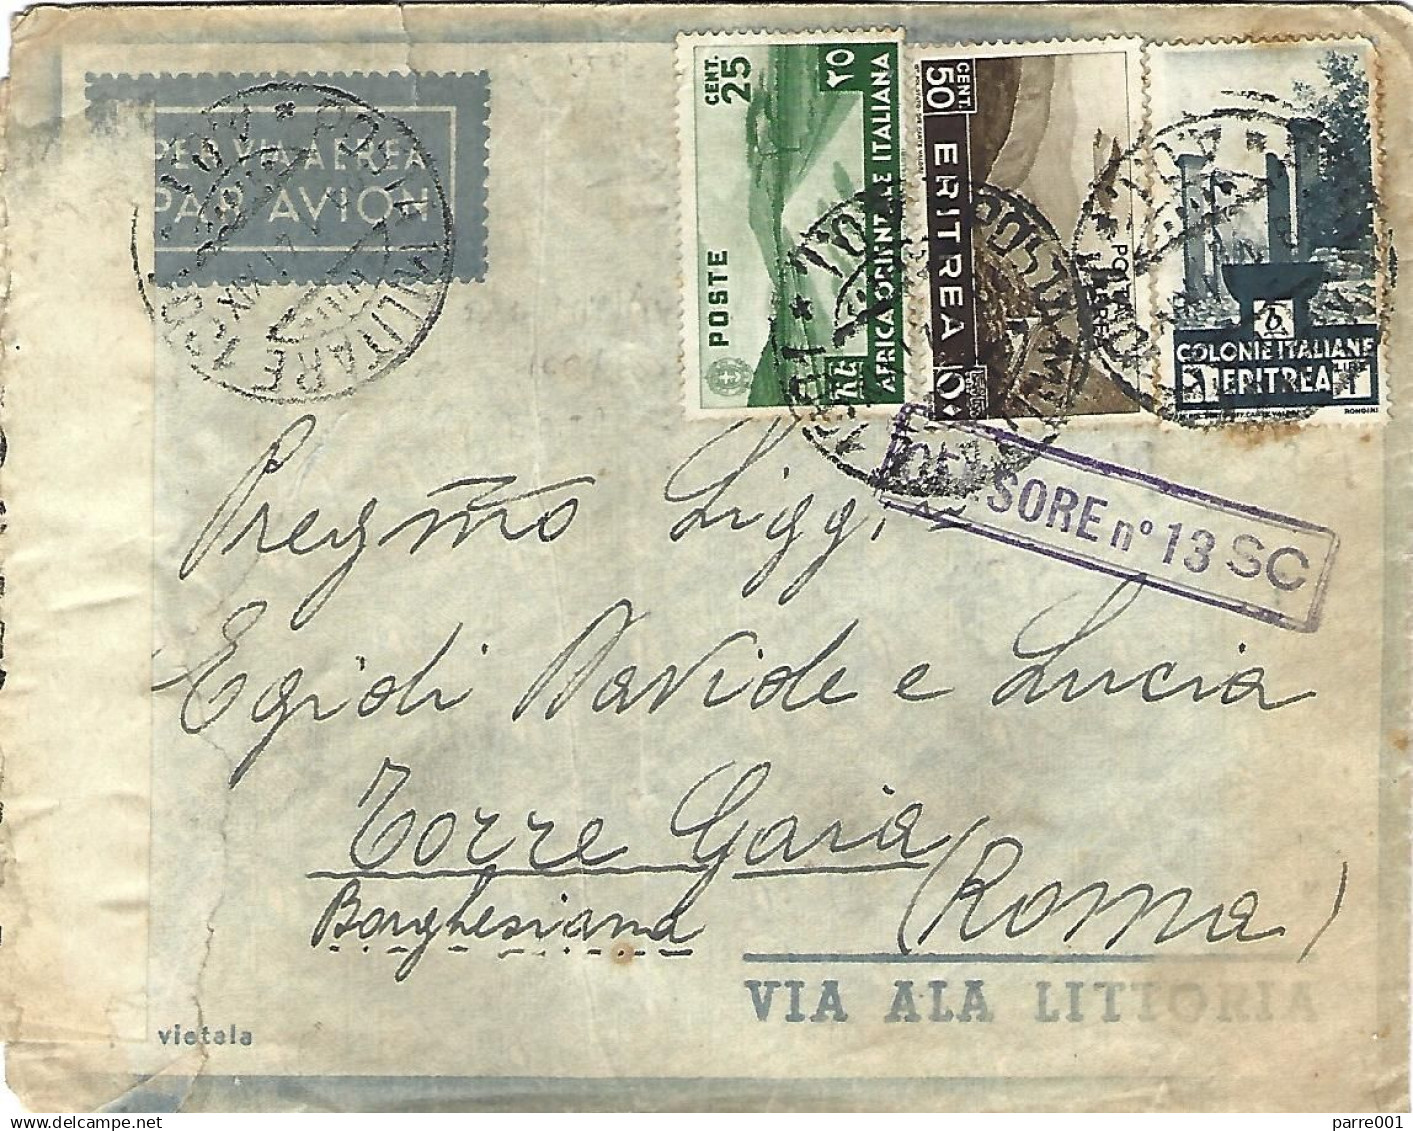 PER VIA AEREA
PAR AVION
POSTA MILITARE
CENT. 25
٢٥
POSTE
AFRICA ORIENTALE ITALIANA
CENT. 50
ERITREA
POSTA AEREA
COLONIE ITALIANE
ERITREA
LIRE 1
CENSORE n° 13 SC
Pregmo Liggi
Egidi Davide e Lucia
Torre Gaia
Borghesiana
(Roma)
VIA ALA LITTORIA
vietala
parre001